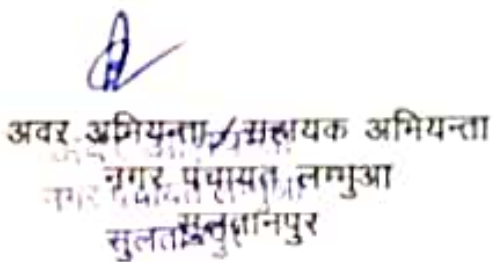 अवर अभियन्ता/सहायक अभियन्ता
नगर पंचायत लम्भुआ
सुलतानपुर